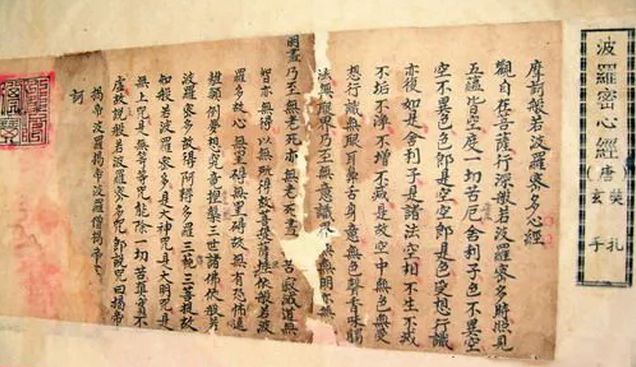 波羅密心經
(唐)
玄奘
手扎
摩訶般若波羅蜜多心經
觀自在菩薩行深般若波羅蜜多時照見
五蘊皆空度一切苦厄舍利子色不異空
空不異色色即是空空即是色受想行識
亦復如是舍利子是諸法空相不生不滅
不垢不淨不增不減是故空中無色無受
想行識無眼耳鼻舌身意無色聲香味觸
法無眼界乃至無意識界無無明亦無
明盡乃至無老死亦無老死盡苦滅道無
智亦無得以無所得故菩提薩埵依般若波
羅多故心無罣碍無罣碍故無有恐怖遠
離顛倒夢想究竟涅槃三世諸佛依般若
波羅蜜多故得阿耨多羅三藐三菩提故
知般若波羅蜜多是大神咒是大明咒是
無上咒是無等等咒能除一切苦真實不
虛故說般若波羅蜜多咒即說咒曰揭帝
揭帝波羅揭帝波羅僧揭帝
訶